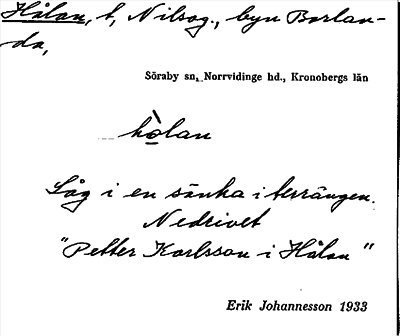 Hålan, t, Nilsog., byn Borlan-
da,
Söraby sn., Norrvidinge hd., Kronobergs län
hòlan
Låg i en sänka i terrängen.
Nedrivet
"Petter Karlsson i Hålan"
Erik Johannesson 1933